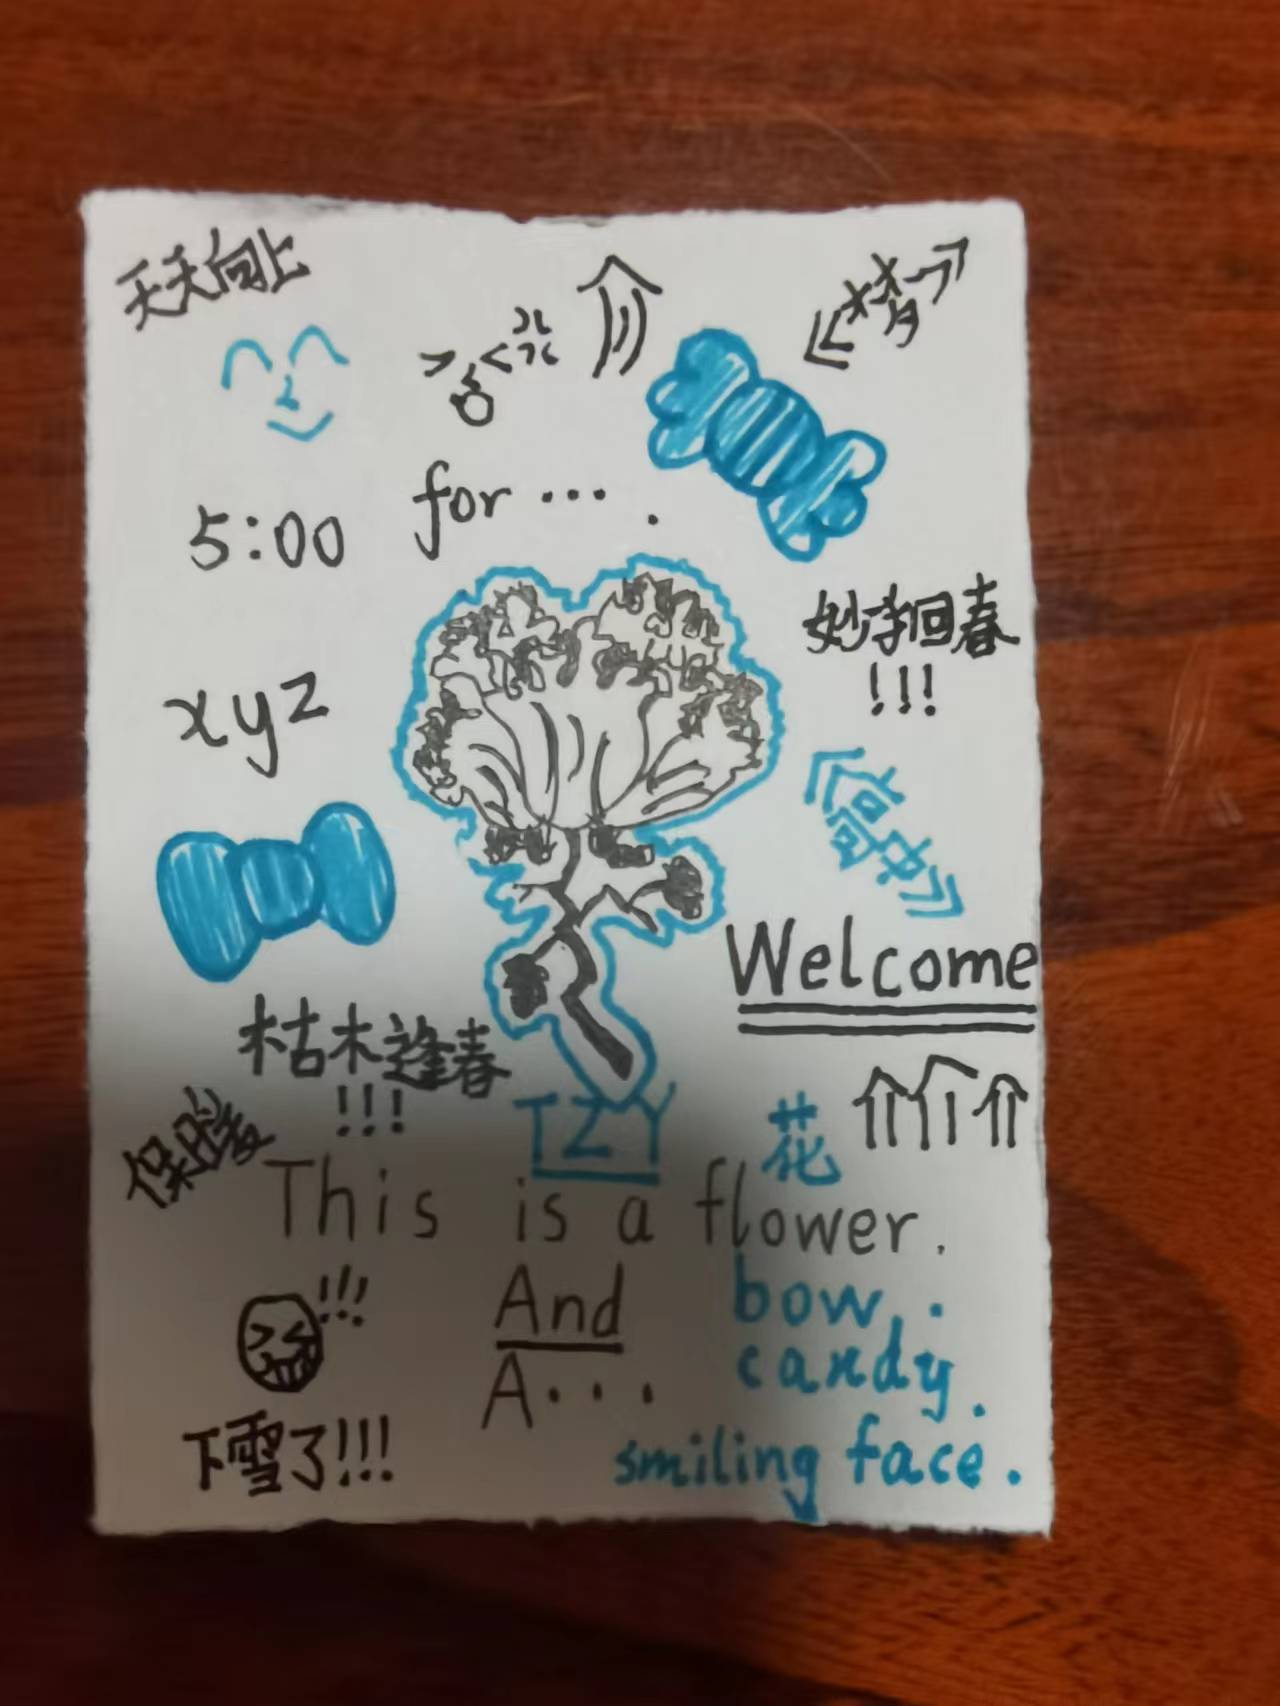 天天向上
《梦》
for ... .
5:00
妙手回春
!!!
xyz
《高中》
Welcome
枯木逢春
!!!
TZY
花
保暖
This is a flower.
!!!
And
bow.
A...
candy.
下雪了!!!
smiling face.